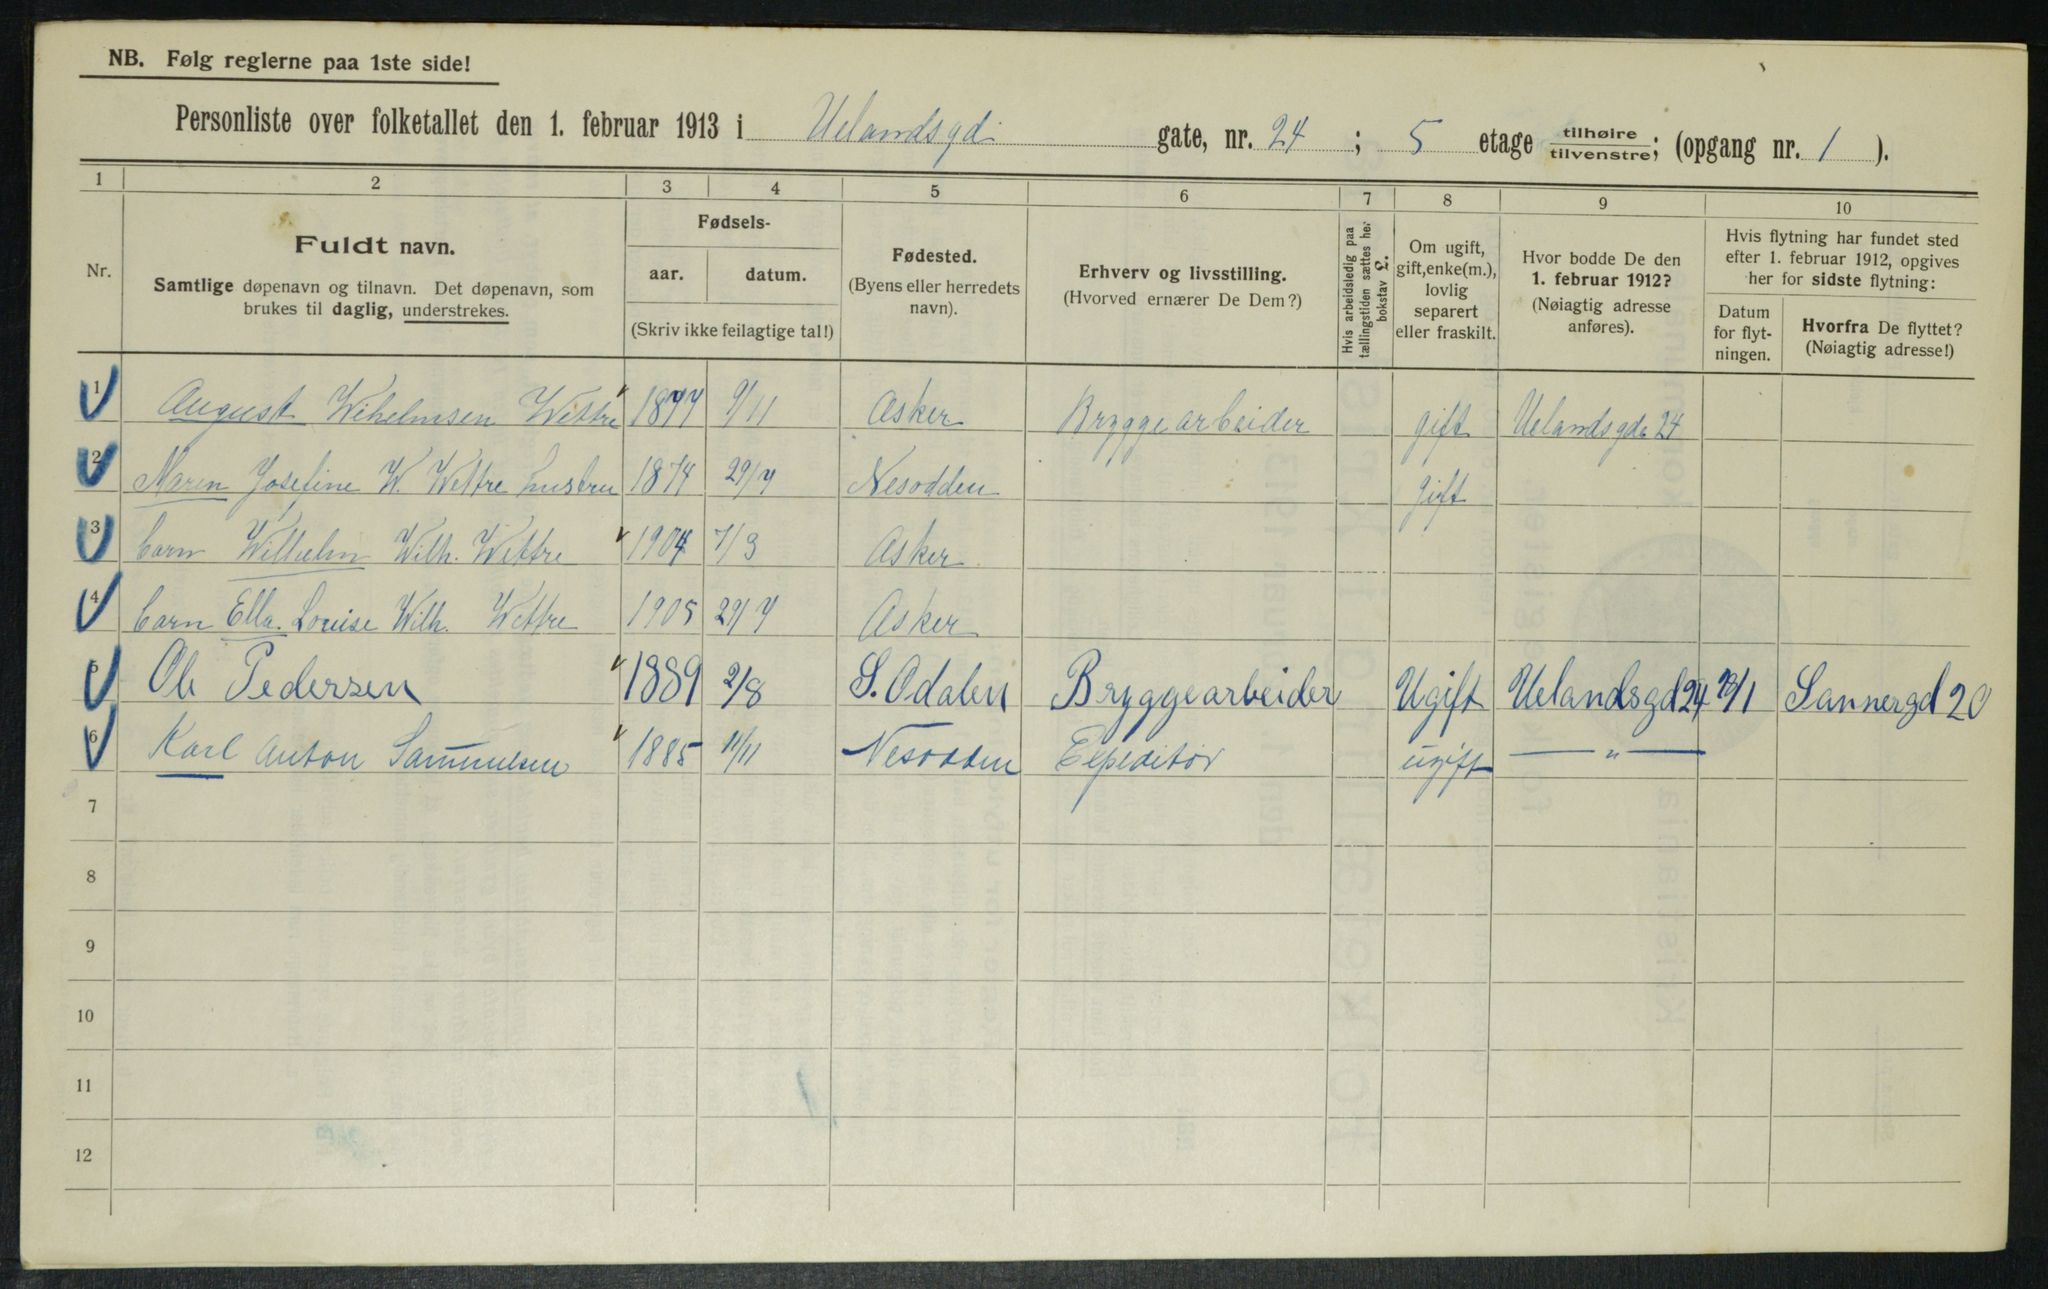 NB. Følg reglerne paa 1ste side!
Personliste over folketallet den 1. februar 1913 i Uelandsgd. gate, nr. 24 ; 5 etage tilhøire tilvenstre; (opgang nr. 1 ).
1 2 3 4 5 6 7 8 9 10
Nr.
Fuldt navn.
Samtlige døpenavn og tilnavn. Det døpenavn, som
brukes til daglig, understrekes.
Fødsels-
aar. datum.
(Skriv ikke feilagtige tal!)
Fødested.
(Byens eller herredets
navn).
Erhverv og livsstilling.
(Hvorved ernærer De Dem?)
Hvis arbeidsledig paa
tællingstiden sættes her
bokstav L.
Om ugift,
gift, enke(m.),
lovlig
separert
eller fraskilt.
Hvor bodde De den
1. februar 1912?
(Nøiagtig adresse
anføres).
Hvis flytning har fundet sted
efter 1. februar 1912, opgives
her for sidste flytning:
Datum
for flyt-
ningen.
Hvorfra De flyttet?
(Nøiagtig adresse!)
1 August Wihelmsen Wettre 1877 9/11 Asker Bryggearbeider gift Uelandsgda 24
2 Maren Josefine W. Wettre hustru 1874 29/7 Nesodden gift
3 barn Wilhelm Wilh. Wettre 1904 7/3 Asker
4 barn Ella Louise Wilh. Wettre 1905 29/7 Asker
5 Ole Pedersen 1889 2/8 S. Odalen Bryggearbeider Ugift Uelandsgd 24 28/1 Sannergd 20
6 Karl Anton Sammuelsen 1885 11/11 Nesodden Expeditør ugift — " —
7
8
9
10
11
12